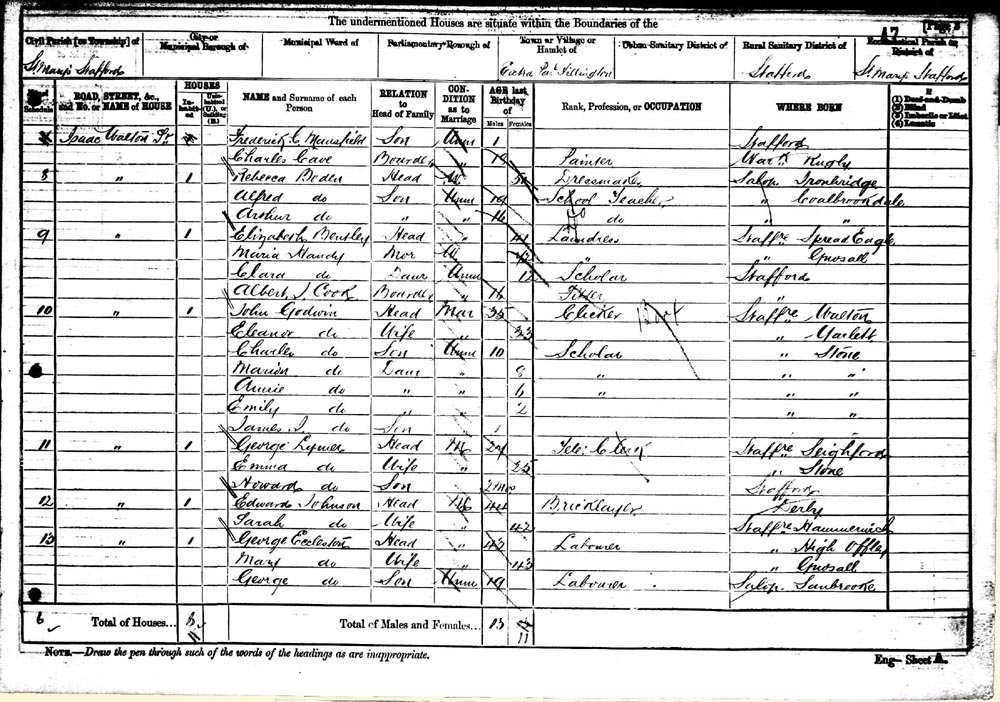 The undermentioned Houses are situate within the Boundaries of the
Civil Parish [or Township] of
City or Municipal Borough of
Municipal Ward of
Parliamentary Borough of
Town or Village or Hamlet of
Urban Sanitary District of
Rural Sanitary District of
Ecclesiastical Parish or District of
St Mary's Stafford
Extra Par. Tillington
Stafford
St Mary's Stafford
ROAD, STREET, &c., and No. or NAME of HOUSE
HOUSES
NAME and Surname of each Person
RELATION to Head of Family
CONDITION as to Marriage
AGE last Birthday of
Males Females
Rank, Profession, or OCCUPATION
WHERE BORN
If (1) Deaf-and-Dumb (2) Blind (3) Imbecile or Idiot (4) Lunatic
Isaac Walton St Frederick C Mansfield Son Unm 1 Stafford
Charles Cave Boarder " 19 Painter Rugby
8 " 1 Rebecca Boden Head W Dressmaker Salop Ironbridge
Alfred do Son Unm 19 School Teacher " Coalbrookdale
Arthur do " " 16 do " "
9 " 1 Elizabeth Bentley Head " 41 Laundress Staffre Spread Eagle
Maria Handy Mor W " " Gnosall
Clara do Daur Unm 12 Scholar Stafford
Albert J. Cook Boarder " 16 Fitter "
10 " 1 John Godwin Head Mar 35 Clicker Boot Staffre Walton
Eleanor do Wife " 33 " Yarlett
Charles do Son Unm 10 Scholar " Stone
Marion do Daur " 8 " " "
Annie do " " 6 " " "
Emily do " " 2 " "
James J. do Son 1
11 " 1 George Lymer Head M 27 Tele: Clerk Staffre Seighford
Emma do Wife " 25 " Stone
Howard do Son 2 mo Stafford
12 " 1 Edward Johnson Head M 44 Bricklayer Derby
Sarah do Wife " 42 Staffre Hammerwich
13 " 1 George Eccleston Head " 43 Labourer " High Offley
Mary do Wife " 43 " Gnosall
George do Son Unm 19 Labourer Salop Sambrooke
6 Total of Houses... Total of Males and Females... 13 11
NOTE.—Draw the pen through such of the words of the headings as are inappropriate.
Eng— Sheet A.